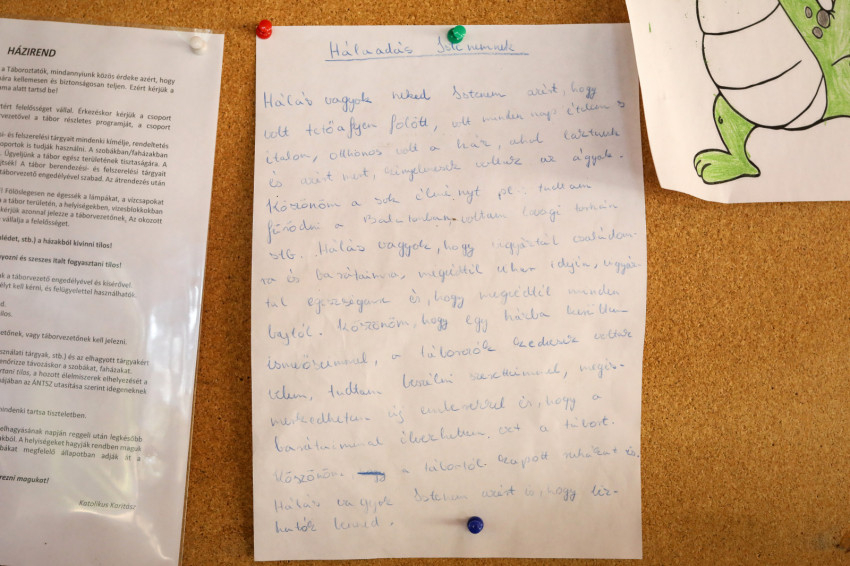 HÁZIREND
a Táboroztatók, mindannyiunk közös érdeke azért, hogy
ára kellemesen és biztonságosan teljen. Ezért kérjük a
ama alatt tartsd be!
tért felelősséget vállal. Érkezéskor kérjük a csoport
vezetővel a tábor részletes programját, a csoport
s- és felszerelési tárgyait mindenki kímélje, rendeltetés
oportok is tudják használni. A szobákban/faházakban
. Ügyeljünk a tábor egész területének tisztaságára. A
jtsék! A tábor berendezési- és felszerelési tárgyait
táborvezető engedélyével szabad. Az átrendezés után
! Fölöslegesen ne égessék a lámpákat, a vízcsapokat
a tábor területén, a helyiségekben, vizesblokkokban
kérjük azonnal jelezze a táborvezetőnek, Az okozott
vállalja a felelősséget.
lédet, stb.) a házakból kivinni tilos!
yozni és szeszes italt fogyasztani tilos!
k a táborvezető engedélyével és kísérővel.
élyt kell kérni, és felügyelettel használhatók.
d.
ilos.
zetőnek, vagy táborvezetőnek kell jelezni.
ználati tárgyak, stb.) és az elhagyott tárgyakért
enőrizze távozáskor a szobákat, faházakat.
rtani tilos, a hozott élelmiszerek elhelyezését a
hájában az ÁNTSZ utasítása szerint idegeneknek
mindenki tartsa tiszteletben.
elhagyásának napján reggeli után legkésőbb
akból. A helyiségeket hagyják rendben maguk
bákat megfelelő állapotban adják át a
rezni magukat!
Katolikus Karitász
Hálaadás Istenemnek
Hálás vagyok neked Istenem azért, hogy
volt tető a fejem fölött, volt minden nap ételem s
italom, otthonos volt a ház, ahol laktunk
és azért mert, kényelmesek voltak az ágyak.
Köszönöm a sok élményt pl.: tudtam
fürödni a Balatonban, voltam
stb. Hálás vagyok, hogy vigyáztál családom-
ra és barátaimra, megvédtél
egészségünk és, hogy megvédtél minden
bajtól. Köszönöm, hogy egy házba kerültem
ismerőseimmel, a táborozók kedvesek voltak
velem, tudtam beszélni szeretteimmel, megis-
merkedhettem új emberekkel és, hogy a
barátaimmal élvezhettem ezt a tábort.
Köszönöm a tábortól kapott ruhákat is.
Hálás vagyok Istenem azért is, hogy bíz-
hatok benned.